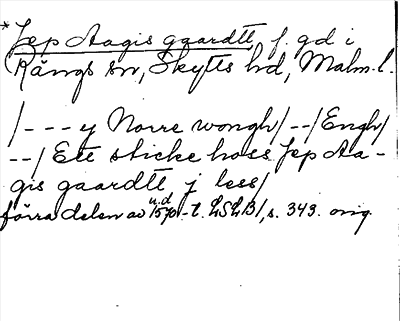 * Jep Aagis gaardtt, f. gd i
Rängs sn, Skytts hd, Malm. l.
/- - - y Norre wongh/ - -/Engh/
- -/ Ett sticke hoss Jep Aa-
gis gaardtt j less/
förra delen av u.d. 1570-t. LSLB1, s. 343. orig.